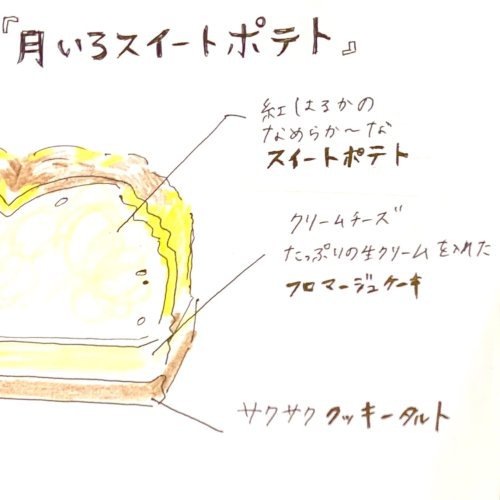 『月いろスイートポテト』
紅はるかの
なめらか〜な
スイートポテト
クリームチーズ
たっぷりの生クリームを入れた
フロマージュケーキ
サクサククッキータルト